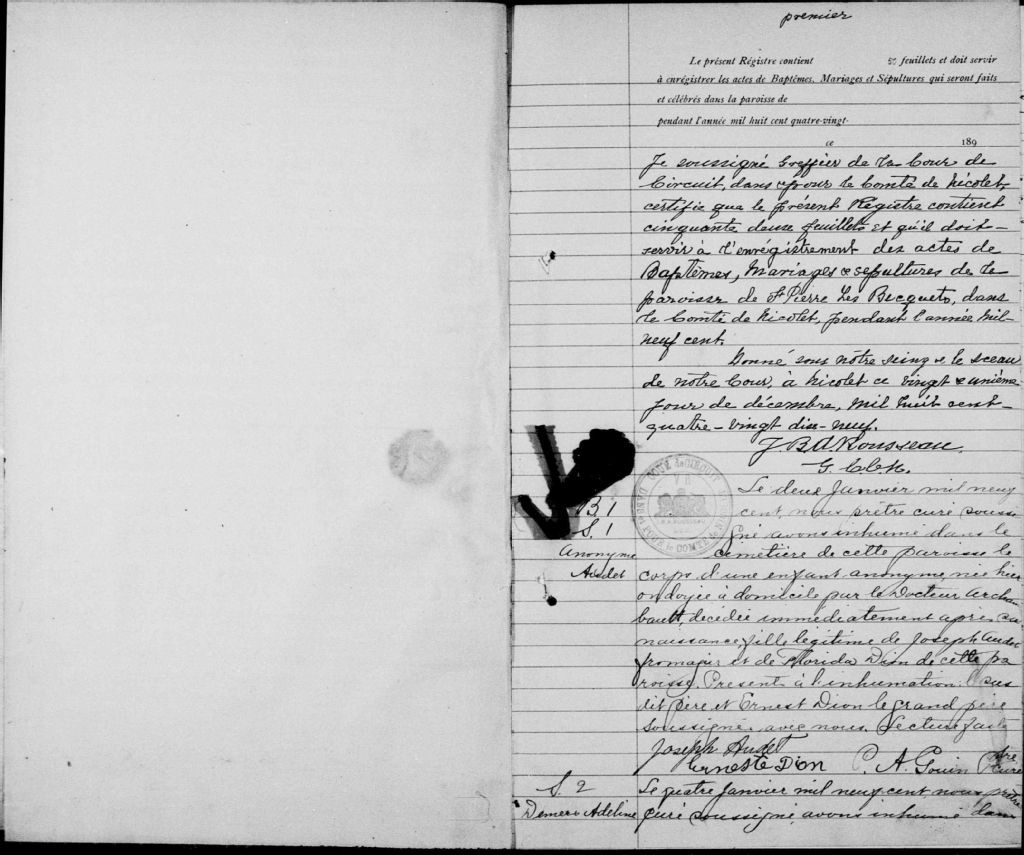 premier
Le présent Régistre contient 52 feuillets et doit servir
à enrégistrer les actes de Baptêmes, Mariages et Sépultures qui seront faits
et célébrés dans la paroisse de
pendant l'année mil huit cent quatre-vingt-
ce 189
Je soussigné Greffier de la Cour de
Circuit, dans & pour le Comté de Nicolet,
certifie que le présent Régistre contient
cinquante deux feuillets et qu'il doit
servir à l'enrégistrement des actes de
Baptêmes, Mariages & sepultures de la
paroisse de St Pierre Les Becquets, dans
le Comté de Nicolet, pendant l'année mil
neuf cent.
Donné sous nôtre seing & le sceau
de nôtre Cour, à Nicolet ce vingt & unième
jour de décembre, mil huit cent
quatre-vingt dix-neuf.
J. B. A. Rousseau.
G. C. C. N.
B 1
S. 1
Anonyme
Audet
Le deux Janvier mil neuf
cent, nous prêtre curé sous si
gné avons inhumé dans le
cimetière de cette paroisse le
corps d'une enfant anonyme, née hier
ondoyée à domicile par le Docteur Archam
bault, décédée immédiatement après sa
naissance, fille légitime de Joseph Audet
fromager et de Florida Dion de cette pa
roisse. Présents à l'inhumation: le sus
dit père et Ernest Dion le grand père
soussignés avec nous. Lecture faite
Joseph Audet
Erneste Dion C. A. Gouin Ptre
Curé
S. 2
Demers Adeline
Le quatre Janvier mil neuf cent, nous prêtre
curé soussigné, avons inhumé dans